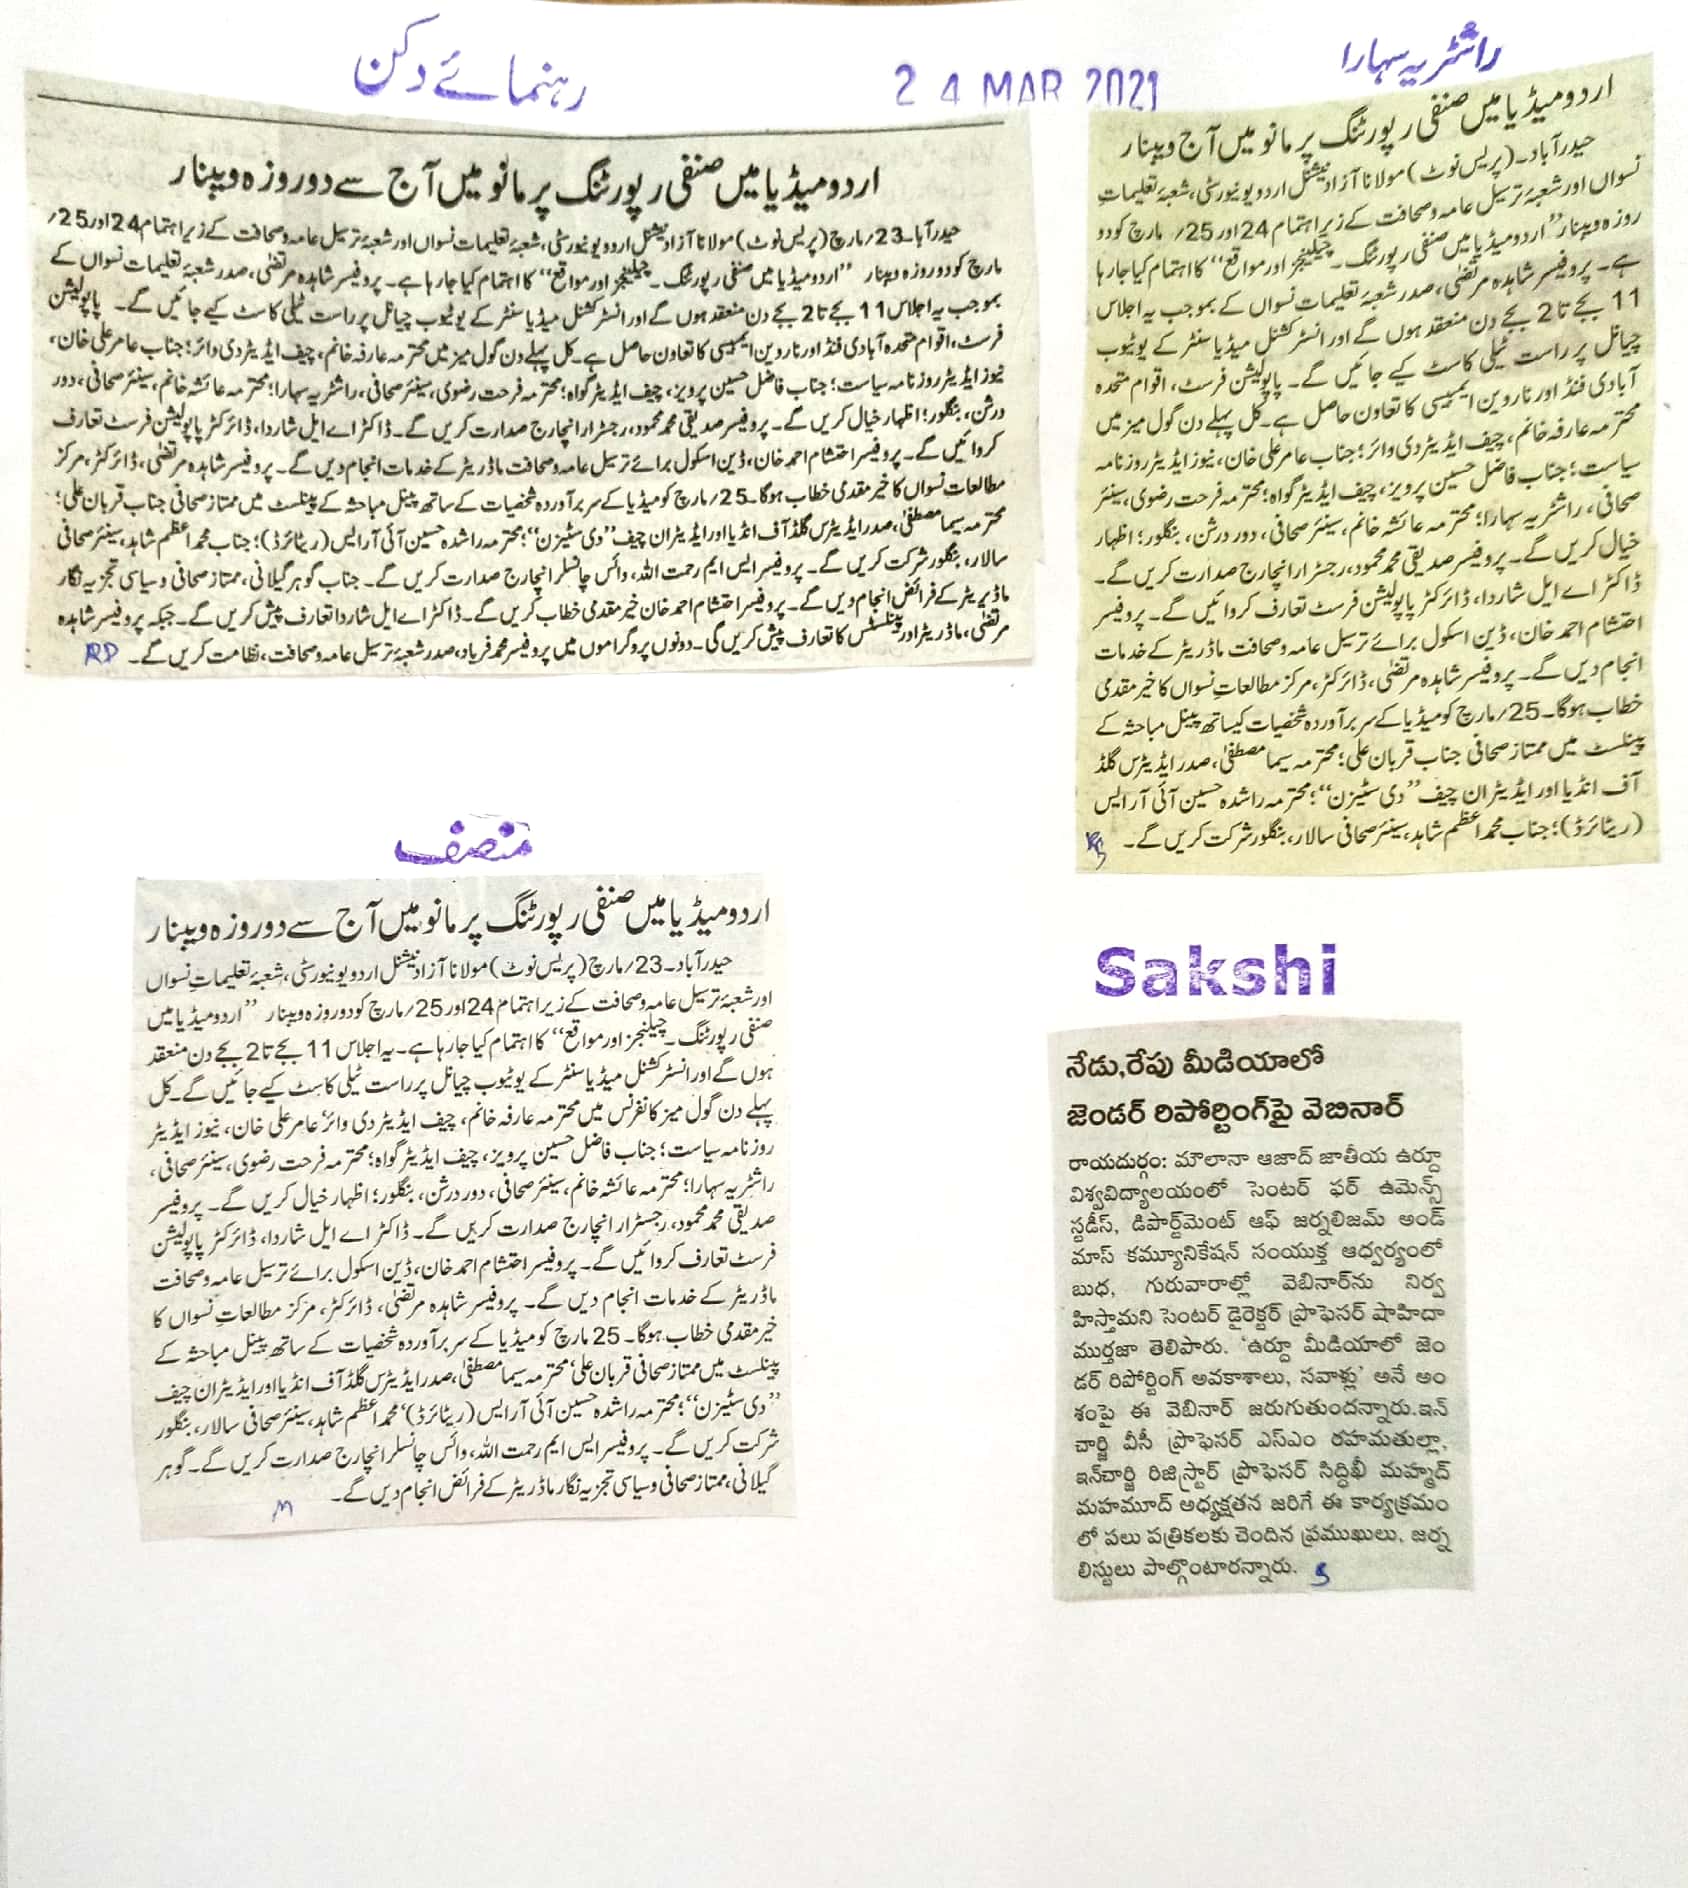 رہنمائے دکن
24 MAR 2021
راشٹریہ سہارا
اردو میڈیا میں صنفی رپورٹنگ پر مانو میں آج سے دو روزہ ویبنار
حیدرآبا۔23؍مارچ (پریس نوٹ) مولانا آزاد نیشنل اردو یونیورسٹی، شعبۂ تعلیمات نسواں اور شعبۂ ترسیل عامہ و صحافت کے زیر اہتمام 24 اور 25؍
مارچ کو دو روزہ ویبنار ”اردو میڈیا میں صنفی رپورٹنگ۔ چیلنجز اور مواقع“ کا اہتمام کیا جارہا ہے۔ پروفیسر شاہدہ مرتضیٰ، صدر شعبۂ تعلیمات نسواں کے
بموجب یہ اجلاس 11 بجے تا 2 بجے دن منعقد ہوں گے اور انسٹرکشنل میڈیا سنٹر کے یوٹیوب چیانل پر راست ٹیلی کاسٹ کیے جائیں گے۔ پاپولیشن
فرسٹ، اقوام متحدہ آبادی فنڈ اور ناروین ایمبیسی کا تعاون حاصل ہے۔ کل پہلے دن گول میز میں محترمہ عارفہ خانم، چیف ایڈیٹر دی وائر؛ جناب عامر علی خان،
نیوز ایڈیٹر روزنامہ سیاست؛ جناب فاضل حسین پرویز، چیف ایڈیٹر گواہ؛ محترمہ فرحت رضوی، سینئر صحافی، راشٹریہ سہارا؛ محترمہ عائشہ خانم، سینئر صحافی، دور
درشن، بنگلور؛ اظہار خیال کریں گے۔ پروفیسر صدیقی محمد محمود، رجسٹرار انچارج صدارت کریں گے۔ ڈاکٹر اے ایل شاردا، ڈائرکٹر پاپولیشن فرسٹ تعارف
کروائیں گے۔ پروفیسر احتشام احمد خان، ڈین اسکول برائے ترسیل عامہ و صحافت ماڈریٹر کے خدمات انجام دیں گے۔ پروفیسر شاہدہ مرتضیٰ، ڈائرکٹر، مرکز
مطالعات نسواں کا خیر مقدمی خطاب ہوگا۔ 25؍مارچ کو میڈیا کے سربرآوردہ شخصیات کے ساتھ پینل مباحثہ کے پینلسٹ میں ممتاز صحافی جناب قربان علی؛
محترمہ سیما مصطفیٰ، صدر ایڈیٹرس گلڈ آف انڈیا اور ایڈیٹر ان چیف ”دی سٹیزن“؛ محترمہ راشدہ حسین آئی آر ایس (ریٹائرڈ)؛ جناب محمد اعظم شاہد، سینئر صحافی
سالار، بنگلور شرکت کریں گے۔ پروفیسر ایس ایم رحمت اللہ، وائس چانسلر انچارج صدارت کریں گے۔ جناب گوہر گیلانی، ممتاز صحافی و سیاسی تجزیہ نگار
ماڈریٹر کے فرائض انجام دیں گے۔ پروفیسر احتشام احمد خان خیر مقدمی خطاب کریں گے۔ ڈاکٹر اے ایل شاردا تعارف پیش کریں گے۔ جبکہ پروفیسر شاہدہ
مرتضیٰ، ماڈریٹر اور پینلسٹس کا تعارف پیش کریں گی۔ دونوں پروگراموں میں پروفیسر محمد فریاد، صدر شعبۂ ترسیل عامہ و صحافت، نظامت کریں گے۔
RD
اردو میڈیا میں صنفی رپورٹنگ پر مانو میں آج ویبنار
حیدرآباد۔ (پریس نوٹ) مولانا آزاد نیشنل اردو یونیورسٹی، شعبۂ تعلیماتِ
نسواں اور شعبۂ ترسیل عامہ و صحافت کے زیر اہتمام 24 اور 25؍ مارچ کو دو
روزہ ویبنار ”اردو میڈیا میں صنفی رپورٹنگ۔ چیلنجز اور مواقع“ کا اہتمام کیا جارہا
ہے۔ پروفیسر شاہدہ مرتضیٰ، صدر شعبۂ تعلیمات نسواں کے بموجب یہ اجلاس
11 بجے تا 2 بجے دن منعقد ہوں گے اور انسٹرکشنل میڈیا سنٹر کے یوٹیوب
چیانل پر راست ٹیلی کاسٹ کیے جائیں گے۔ پاپولیشن فرسٹ، اقوام متحدہ
آبادی فنڈ اور ناروین ایمبیسی کا تعاون حاصل ہے۔ کل پہلے دن گول میز میں
محترمہ عارفہ خانم، چیف ایڈیٹر دی وائر؛ جناب عامر علی خان، نیوز ایڈیٹر روزنامہ
سیاست؛ جناب فاضل حسین پرویز، چیف ایڈیٹر گواہ؛ محترمہ فرحت رضوی، سینئر
صحافی، راشٹریہ سہارا؛ محترمہ عائشہ خانم، سینئر صحافی، دور درشن، بنگلور؛ اظہار
خیال کریں گے۔ پروفیسر صدیقی محمد محمود، رجسٹرار انچارج صدارت کریں گے۔
ڈاکٹر اے ایل شاردا، ڈائرکٹر پاپولیشن فرسٹ تعارف کروائیں گے۔ پروفیسر
احتشام احمد خان، ڈین اسکول برائے ترسیل عامہ و صحافت ماڈریٹر کے خدمات
انجام دیں گے۔ پروفیسر شاہدہ مرتضیٰ، ڈائرکٹر، مرکز مطالعاتِ نسواں کا خیر مقدمی
خطاب ہوگا۔ 25؍مارچ کو میڈیا کے سربرآوردہ شخصیات کیساتھ پینل مباحثہ کے
پینلسٹ میں ممتاز صحافی جناب قربان علی؛ محترمہ سیما مصطفیٰ، صدر ایڈیٹرس گلڈ
آف انڈیا اور ایڈیٹر ان چیف ”دی سٹیزن“؛ محترمہ راشدہ حسین آئی آر ایس
(ریٹائرڈ)؛ جناب محمد اعظم شاہد، سینئر صحافی سالار، بنگلور شرکت کریں گے۔
منصف
اردو میڈیا میں صنفی رپورٹنگ پر مانو میں آج سے دو روزہ ویبنار
حیدرآباد۔ 23؍مارچ (پریس نوٹ) مولانا آزاد نیشنل اردو یونیورسٹی، شعبۂ تعلیماتِ نسواں
اور شعبۂ ترسیل عامہ و صحافت کے زیر اہتمام 24 اور 25؍مارچ کو دو روزہ ویبنار ”اردو میڈیا میں
صنفی رپورٹنگ۔ چیلنجز اور مواقع“ کا اہتمام کیا جارہا ہے۔ یہ اجلاس 11 بجے تا 2 بجے دن منعقد
ہوں گے اور انسٹرکشنل میڈیا سنٹر کے یوٹیوب چیانل پر راست ٹیلی کاسٹ کیے جائیں گے۔ کل
پہلے دن گول میز کانفرنس میں محترمہ عارفہ خانم، چیف ایڈیٹر دی وائر؛ عامر علی خان، نیوز ایڈیٹر
روزنامہ سیاست؛ جناب فاضل حسین پرویز، چیف ایڈیٹر گواہ؛ محترمہ فرحت رضوی، سینئر صحافی،
راشٹریہ سہارا؛ محترمہ عائشہ خانم، سینئر صحافی، دور درشن، بنگلور؛ اظہار خیال کریں گے۔ پروفیسر
صدیقی محمد محمود، رجسٹرار انچارج صدارت کریں گے۔ ڈاکٹر اے ایل شاردا، ڈائرکٹر پاپولیشن
فرسٹ تعارف کروائیں گے۔ پروفیسر احتشام احمد خان، ڈین اسکول برائے ترسیل عامہ و صحافت
ماڈریٹر کے خدمات انجام دیں گے۔ پروفیسر شاہدہ مرتضیٰ، ڈائرکٹر، مرکز مطالعاتِ نسواں کا
خیر مقدمی خطاب ہوگا۔ 25 مارچ کو میڈیا کے سربرآوردہ شخصیات کے ساتھ پینل مباحثہ کے
پینلسٹ میں ممتاز صحافی قربان علی؛ محترمہ سیما مصطفیٰ، صدر ایڈیٹرس گلڈ آف انڈیا اور ایڈیٹر ان چیف
”دی سٹیزن“؛ محترمہ راشدہ حسین آئی آر ایس (ریٹائرڈ)؛ محمد اعظم شاہد، سینئر صحافی سالار، بنگلور
شرکت کریں گے۔ پروفیسر ایس ایم رحمت اللہ، وائس چانسلر انچارج صدارت کریں گے۔ گوہر
گیلانی، ممتاز صحافی و سیاسی تجزیہ نگار ماڈریٹر کے فرائض انجام دیں گے۔
M
Sakshi
నేడు,రేపు మీడియాలో
జెండర్ రిపోర్టింగ్‌పై వెబినార్
రాయదుర్గం: మౌలానా ఆజాద్ జాతీయ ఉర్దూ
విశ్వవిద్యాలయంలో సెంటర్ ఫర్ ఉమెన్స్
స్టడీస్, డిపార్ట్‌మెంట్ ఆఫ్ జర్నలిజమ్ అండ్
మాస్ కమ్యూనికేషన్ సంయుక్త ఆధ్వర్యంలో
బుధ, గురువారాల్లో వెబినార్‌ను నిర్వ
హిస్తామని సెంటర్ డైరెక్టర్ ప్రొఫెసర్ షాహిదా
ముర్తజా తెలిపారు. ‘ఉర్దూ మీడియాలో జెం
డర్ రిపోర్టింగ్ అవకాశాలు, సవాళ్లు’ అనే అం
శంపై ఈ వెబినార్ జరుగుతుందన్నారు.ఇన్
చార్జి వీసీ ప్రొఫెసర్ ఎస్ఎం రహమతుల్లా,
ఇన్‌చార్జి రిజిస్ట్రార్ ప్రొఫెసర్ సిద్ధిఖీ మహ్మద్
మహమూద్ అధ్యక్షతన జరిగే ఈ కార్యక్రమం
లో పలు పత్రికలకు చెందిన ప్రముఖులు, జర్న
లిస్టులు పాల్గొంటారన్నారు.
S